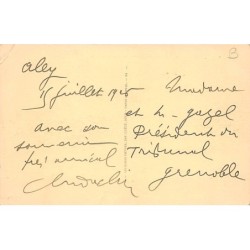 Aley
15 juillet 1926
avec son
souvenir
très amical
Madame
et M. Gazel
Président du
Tribunal
Grenoble
B